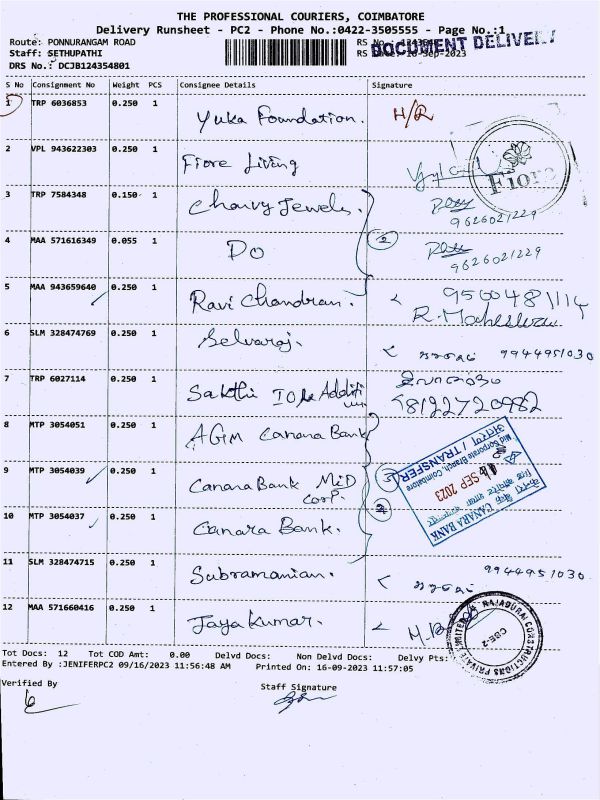 THE PROFESSIONAL COURIERS, COIMBATORE
Delivery Runsheet - PC2 - Phone No.:0422-3505555 - Page No.:1
Route: PONNURANGAM ROAD
Staff: SETHUPATHI
DRS No.: DCJB124354801
RS No.:
RS
16-Sep-2023
DOCUMENT DELIVER
S No Consignment No Weight PCS Consignee Details Signature
1 TRP 6036853 0.250 1 Yuka Foundation. H/R
2 VPL 943622303 0.250 1 Fiore Living
Fiore
3 TRP 7584348 0.150 1 Charvy Jewels.
9626021229
4 MAA 571616349 0.055 1 Do
2
9626021229
5 MAA 943659640 0.250 1 Ravi Chandran.
R. Maheswari
6 SLM 328474769 0.250 1 Selvaraj. 9944951030
7 TRP 6027114 0.250 1 Sakthi
9812272 0982
8 MTP 3054051 0.250 1 AGM Canara Bank
9 MTP 3054039 0.250 1 Canara Bank MiD
Corp.
10 MTP 3054037 0.250 1 Canara Bank.
अंतरण / TRANSFER
Mid Corporate Branch, Coimbatore
SEP 2023
केनरा बैंक CANARA BANK
11 SLM 328474715 0.250 1 Subramanian. 9944951030
12 MAA 571660416 0.250 1 Jayakumar.
RAJADURAI CONSTRUCTIONS PRIVATE LIMITED
CBE-2
Tot Docs: 12 Tot COD Amt: 0.00 Delvd Docs: Non Delvd Docs: Delvy Pts:
Entered By :JENIFERPC2 09/16/2023 11:56:48 AM Printed On: 16-09-2023 11:57:05
Verified By
Staff Signature